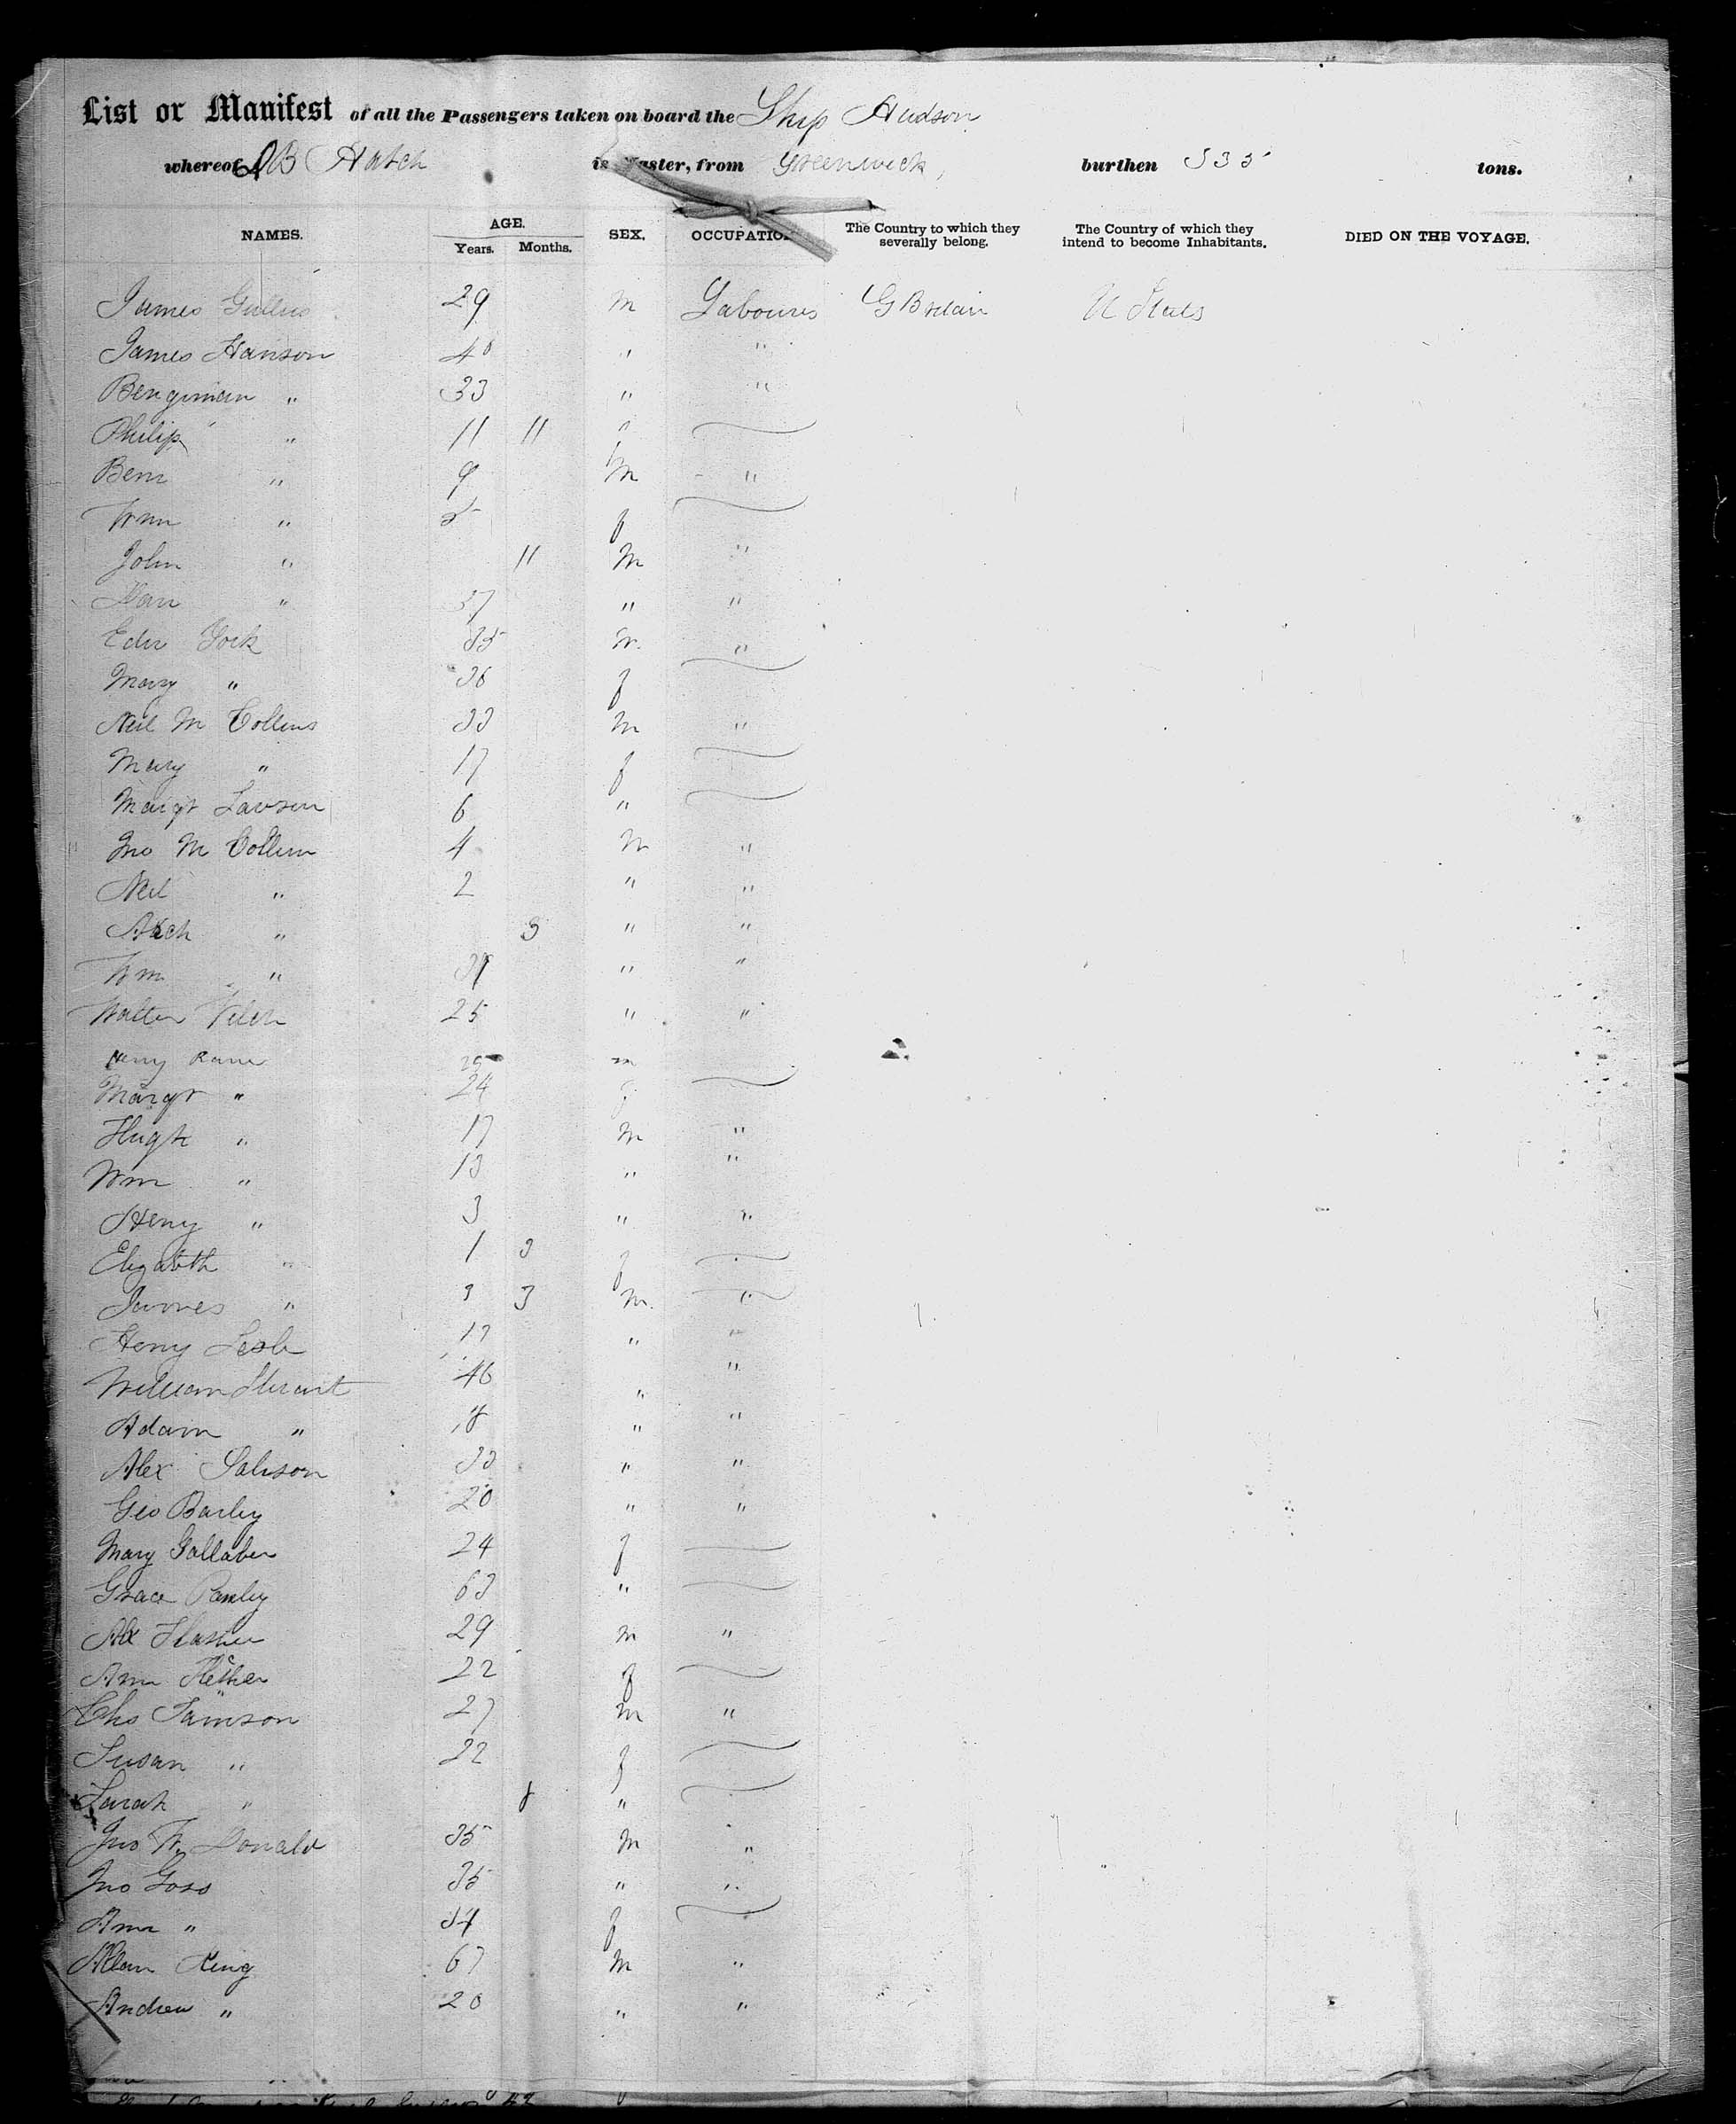 List or Manifest of all the Passengers taken on board the Ship Hudson
whereof B Hatch is Master, from Greenwick, burthen 535 tons.
NAMES. AGE. SEX. OCCUPATION The Country to which they severally belong. The Country of which they intend to become Inhabitants. DIED ON THE VOYAGE.
Years. Months.
James 29 m Laboures G Britain U States
James Hanson 40 " "
Bengiman " 33 " "
Philip " 11 11
Benr " 9 m "
Wm " 5 f
John " 11 m "
" 37 " "
York 35 m "
Mary " 36 f
Neil M Collins 33 m "
Mary " 17 f
Margt Lawson 6 "
Jno M Collin 4 m "
Neil " 2 " "
Arch " 3 " "
Wm " " "
Walter 25 " "
Heny 25 m
Margt " 24 f
Hugh " 17 m "
Wm " 13 " "
Heny " 3 " "
Elizabth " 1 3 f
James " 3 3 m "
Heny Lesle 17 " "
William Stuart 46 " "
Adam " 18 " "
Alex 33 " "
Geo Barley 20 " "
Mary Gallaher 24 f
Grace 63 "
Alx 29 m "
Ann 22 f
Chs 27 m "
Susan " 22 f
Sarah " 8 "
Jno Donald 35 m "
Jno Goss 35 " "
Ann " 34 f
Allan King 67 m "
Andrew " 20 " "